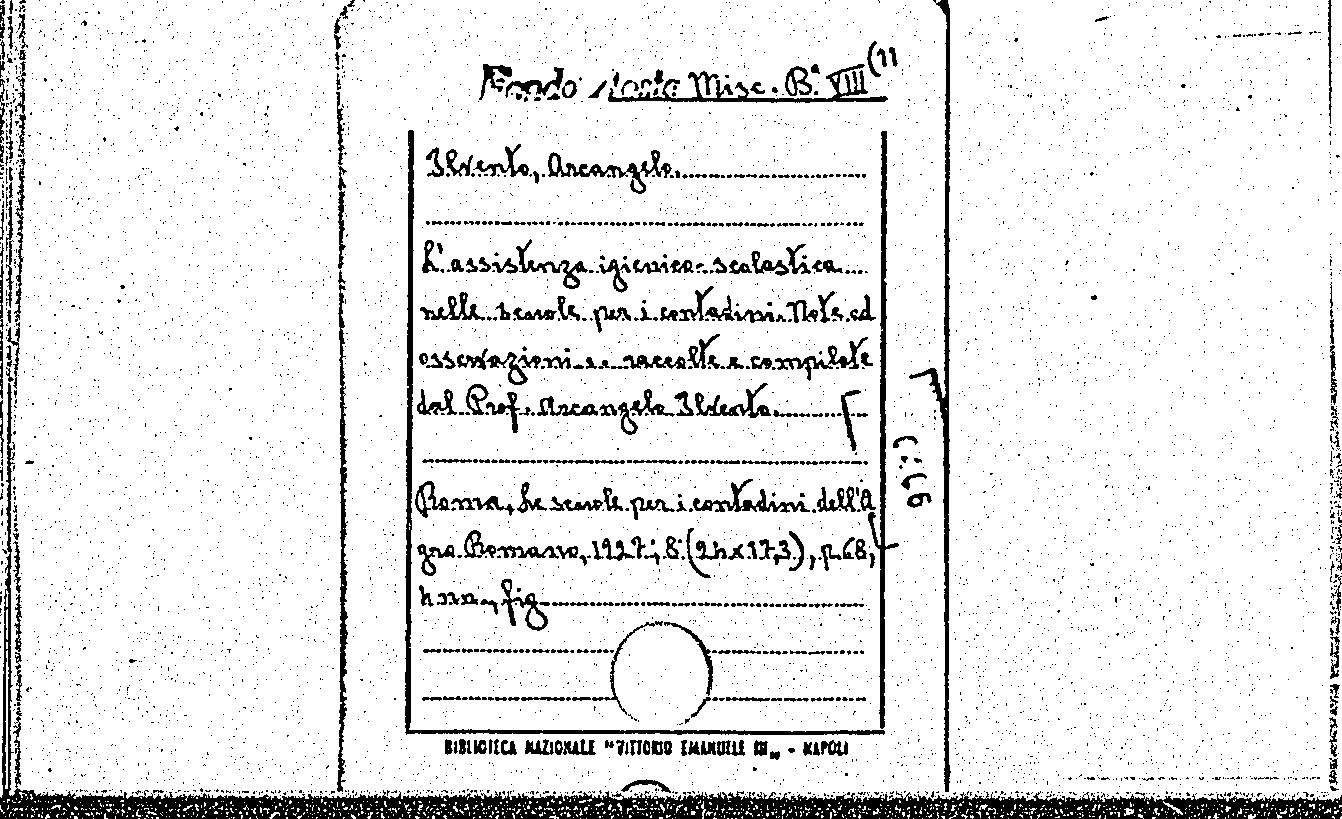 Fondo Misc. B.ª VIII (11
Ilvento, Arcangelo.
L'assistenza igienico-scolastica
nelle scuole per i contadini. Note ed
osservazioni .. raccolte e compilate
dal Prof. Arcangelo Ilvento.
Roma, Le scuole per i contadini dell'A
gro Romano, 1927; 8° (24x17,3), p. 68,
4 nn., fig.
BIBLIOTECA NAZIONALE "VITTORIO EMANUELE III„ - NAPOLI